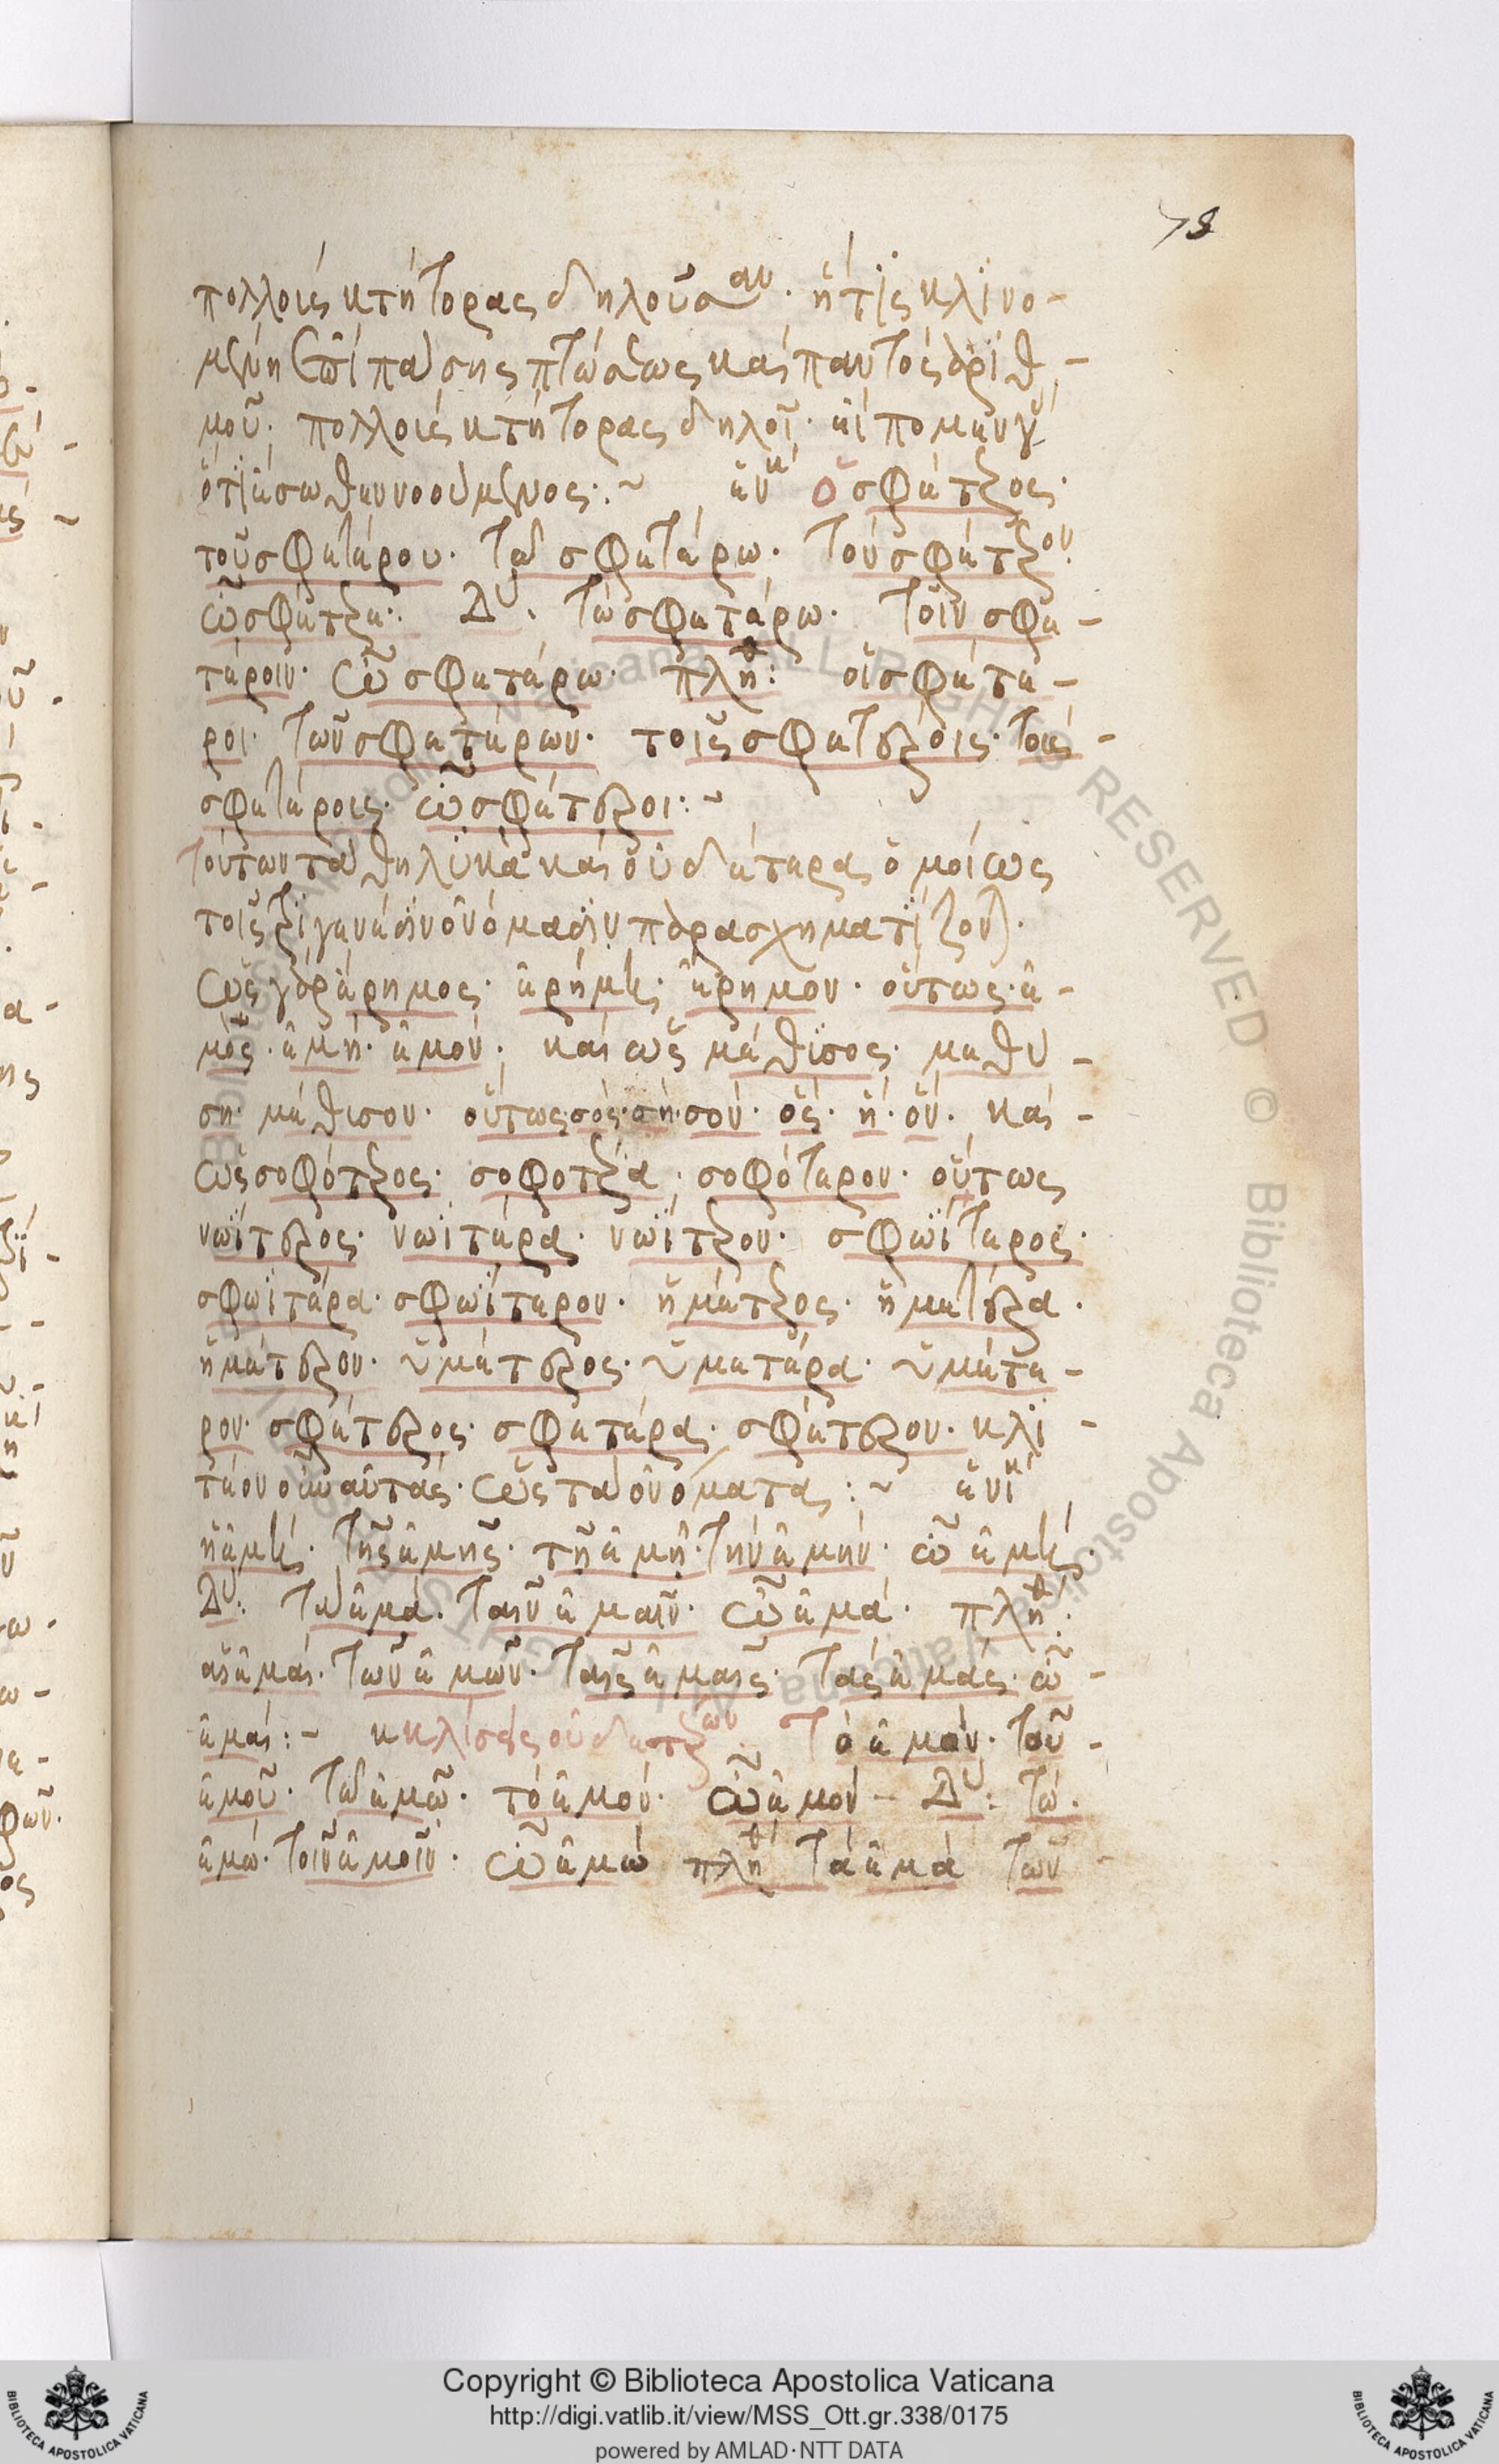 78
πολλοὺς κτήτορας δηλοῦσαν· ἥτις κλινο-
μένη ἐπὶ πάσης πτώσεως καὶ παντὸς ἀριθ-
μοῦ· πολλοὺς κτήτορας δηλοῖ· εἴπομεν γὰρ
ὅτι ἔσωθεν νοούμενος :~ ἑνικ ὁ σφέτερος·
τοῦ σφετέρου· τῶ σφετέρω· τὸν σφέτερον·
ὦ σφέτερε: Δυ· τὼ σφετέρω· τοῖν σφε-
τέροιν· ὦ σφετέρω· πλη: οἱ σφέτε-
ροι· τῶν σφετέρων· τοῖς σφετέροις· τοὺς
σφετέρους· ὦ σφέτεροι :~
τούτων τὰ θηλυκὰ καὶ οὐδέτερα ὁμοίως
τοῖς ἐν ὀνόμασιν παρασχηματίζον
ὡς γὰρ ἔρημος· ἐρήμη· ἔρημον· οὕτως· ἐ-
μός· ἐμή· ἐμόν· καὶ ὡς μέθυσος· μεθύ
ση· μέθυσον· οὕτως· σός· σή· σόν· ὅς· ἥ· ὅν· καὶ
ὡς σοφώτερος· σοφωτέρα· σοφώτερον· οὕτως
νωΐτερος· νωϊτέρα· νωΐτερον· σφωΐτερος·
σφωϊτέρα· σφωΐτερον· ἡμέτερος· ἡμετέρα·
ἡμέτερον· ὑμέτερος· ὑμετέρα· ὑμέτε-
ρον· σφέτερος· σφετέρα· σφέτερον· κλι
τέον οὖν αὐτὰς· ὡς τὰ ὀνόματα :~ ἑνικ
ἡ ἐμή· τῆς ἐμῆς· τῆ ἐμῆ· τὴν ἐμήν· ὦ ἐμή·
Δυ: τὰ ἐμά· ταῖν ἐμαῖν· ὦ ἐμά· πλη:
αἱ ἐμαί· τῶν ἐμῶν· ταῖς ἐμαῖς· τὰς ἐμάς· ὦ
ἐμαί :~ κλίσεις οὐδετέρων Τὸ ἐμόν· τοῦ
ἐμοῦ· τῶ ἐμῶ· τὸ ἐμόν· ὦ ἐμόν – Δυ: τὼ·
ἐμώ· τοῖν ἐμοῖν· ὦ ἐμώ πλη τὰ ἐμά τῶν
BIBLIOTECA APOSTOLICA VATICANA
Copyright © Biblioteca Apostolica Vaticana
http://digi.vatlib.it/view/MSS_Ott.gr.338/0175
powered by AMLAD·NTT DATA
BIBLIOTECA APOSTOLICA VATICANA